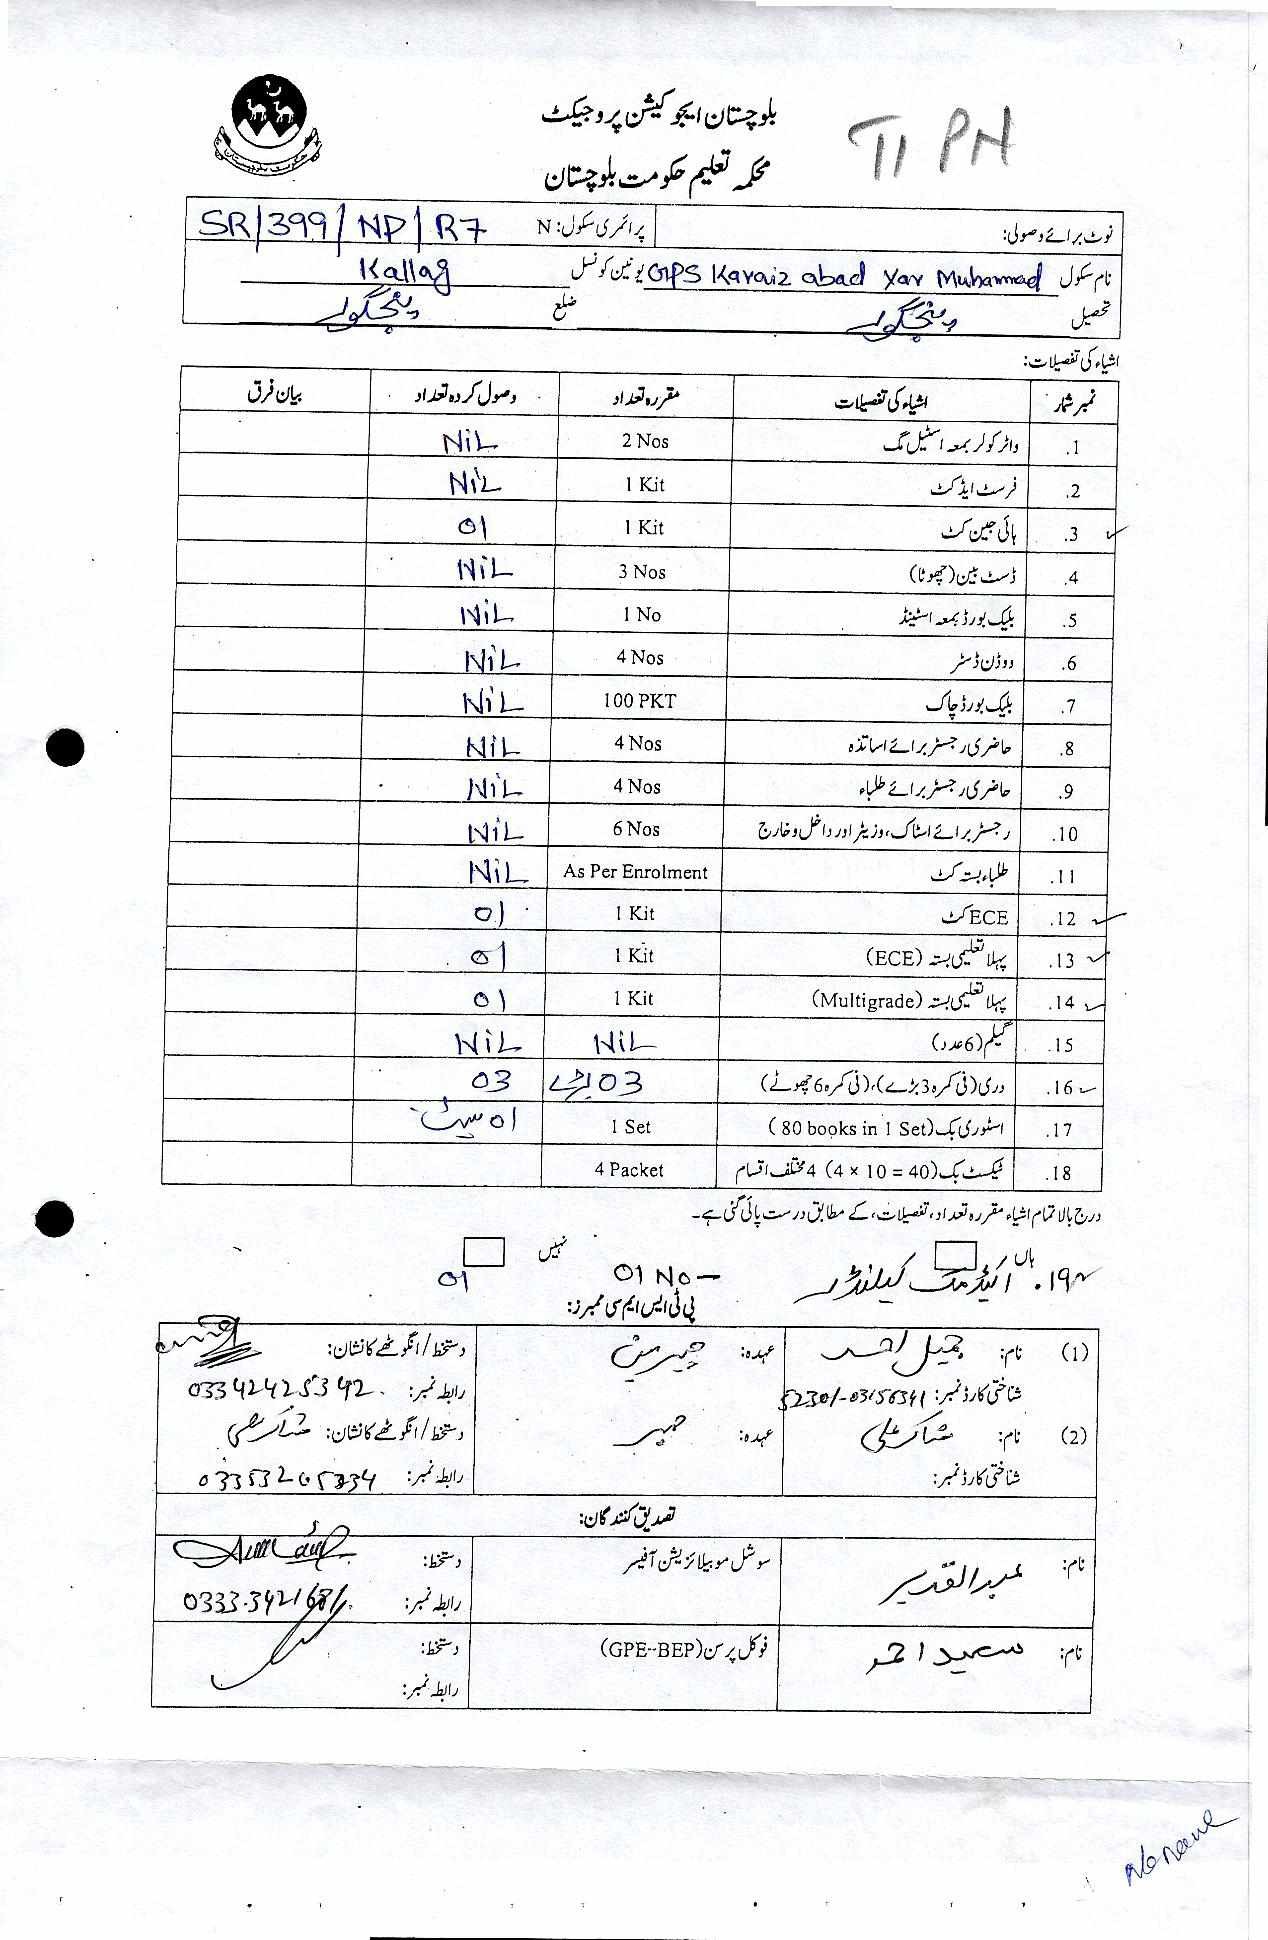 بلوچستان ایجوکیشن پروجیکٹ
TI PN
محکمہ تعلیم حکومت بلوچستان
نوٹ برائے وصولی: پرائمری سکول: N SR/399/NP/R7
نام سکول GPS Karaiz abad Yar Muhammad یونین کونسل Kallag
تحصیل پنجگور ضلع پنجگور
اشیاء کی تفصیلات:
نمبر شمار اشیاء کی تفصیلات مقررہ تعداد وصول کردہ تعداد بیان فرق
1. واٹر کولر بمعہ اسٹیل مگ 2 Nos NiL
2. فرسٹ ایڈ کٹ 1 Kit NiL
3. ہائی جین کٹ 1 Kit 01
4. ڈسٹ بین (چھوٹا) 3 Nos NiL
5. بلیک بورڈ بمعہ اسٹینڈ 1 No NiL
6. ووڈن ڈسٹر 4 Nos NiL
7. بلیک بورڈ چاک 100 PKT NiL
8. حاضری رجسٹر برائے اساتذہ 4 Nos NiL
9. حاضری رجسٹر برائے طلباء 4 Nos NiL
10. رجسٹر برائے اسٹاک، وزیٹر اور داخل و خارج 6 Nos NiL
11. طلباء بستہ کٹ As Per Enrolment NiL
12. ECE کٹ 1 Kit 01
13. پہلا تعلیمی بستہ (ECE) 1 Kit 01
14. پہلا تعلیمی بستہ (Multigrade) 1 Kit 01
15. گلیم (6 عدد) NiL NiL
16. دری (فی کمرہ 3 بڑے)، (فی کمرہ 6 چھوٹے) 03 بڑے 03
17. اسٹوری بک (80 books in 1 Set) 1 Set 01 سیٹ
18. ٹیکسٹ بک (4 × 10 = 40) 4 مختلف اقسام 4 Packet
درج بالا تمام اشیاء مقررہ تعداد، تفصیلات، کے مطابق درست پائی گئی ہے۔
ہاں نہیں
19. اکیڈمک کیلنڈر 01 No 01
پی ٹی ایس ایم سی ممبرز:
(1) نام: جمیل احمد عہدہ: چیرمین دستخط / انگوٹھے کا نشان:
شناختی کارڈ نمبر: 52301-03156341 رابطہ نمبر: 03342425342
(2) نام: شاکر علی عہدہ: ممبر دستخط / انگوٹھے کا نشان: شاکر علی
شناختی کارڈ نمبر: رابطہ نمبر: 03353205234
تصدیق کنندگان:
نام: عبدالقدیر سوشل موبیلائزیشن آفیسر دستخط:
رابطہ نمبر: 0333-3421681
نام: سعید احمد فوکل پرسن (GPE-BEP) دستخط:
رابطہ نمبر: